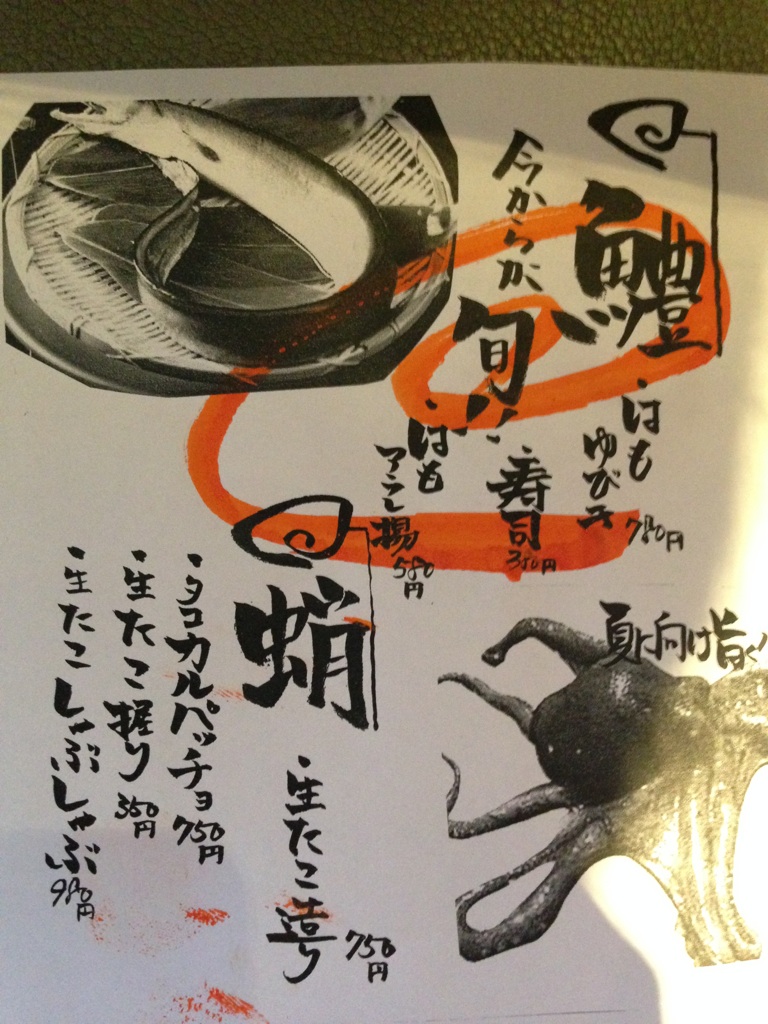 鱧
今からが
旬!!
・はも
ゆびき
780円
・寿司
350円
・はも
アラレ揚
580円
夏に向け旨く
蛸
・生たこ造り
750円
・タコカルパッチョ
750円
・生たこ握り
350円
・生たこしゃぶしゃぶ
980円